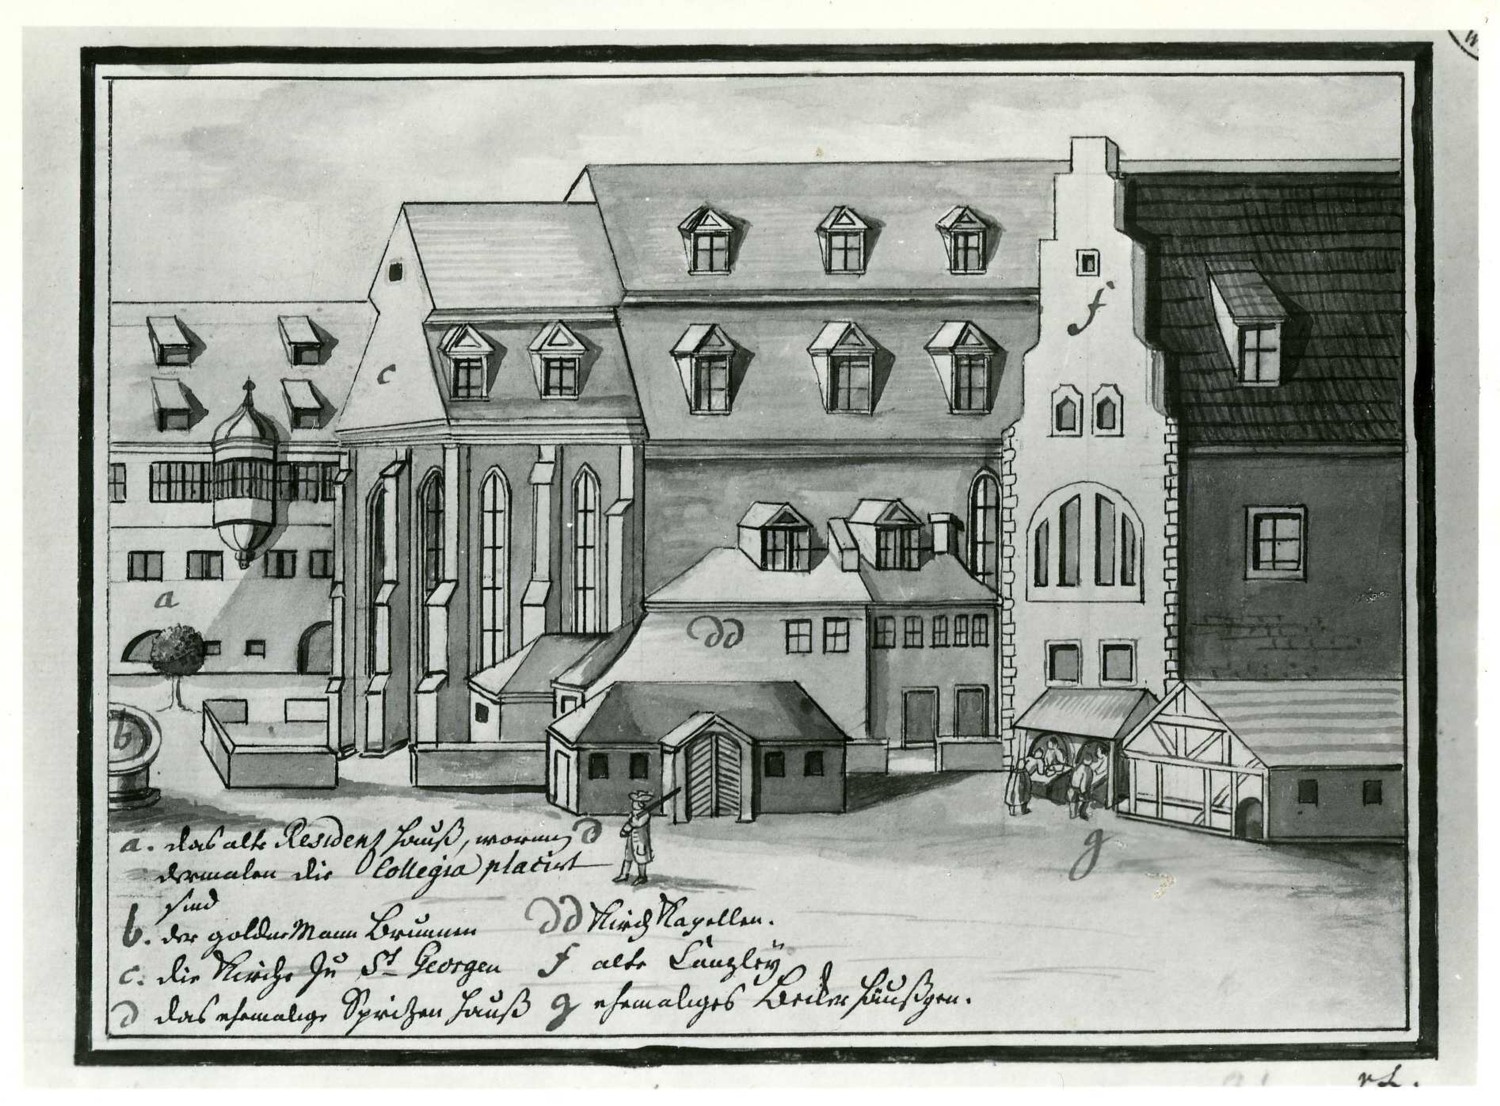 f
c
a
dd
b
g
d
a. das alte Residenz Hauß, worinn
dermalen die Collegia placirt
sind
b. der goldne Mann Brunnen
dd Kirch Kapellen.
c. die Kirche zu St Georgen
f alte Canzley
d das ehemalige Spritzen Hauß
g ehemaliges Becker Häußgen.